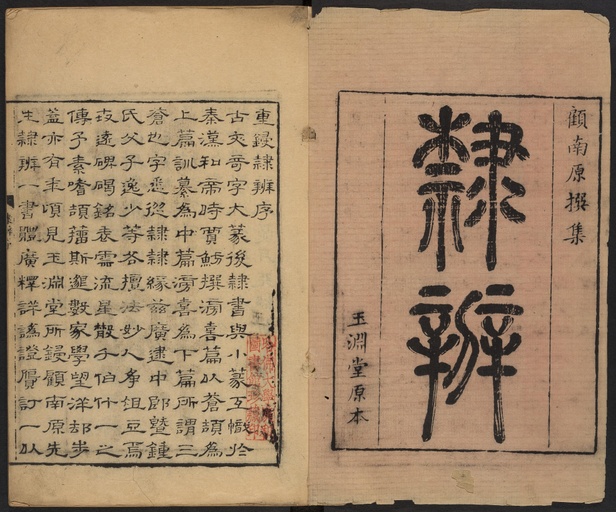 顧南原撰集
隸辨
玉淵堂原本
重鋟隸辨序
古文奇字大篆後隸書與小篆互幟於
秦漢和帝時賈魴撰滂喜篇以蒼頡為
上篇訓纂為中篇滂喜為下篇所謂三
蒼也字悉從隸隸緣茲廣逮中郎暨鍾
氏父子逸少等各擅法妙人爭俎豆焉
故遠碑碣銘表流星散子伯什一之
傳予素嗜頡籀斯邈數家學望洋却步
蓋亦有年頃見玉淵堂所鋟顧南原先
生隸辨一書體廣釋詳譌證贋訂一以